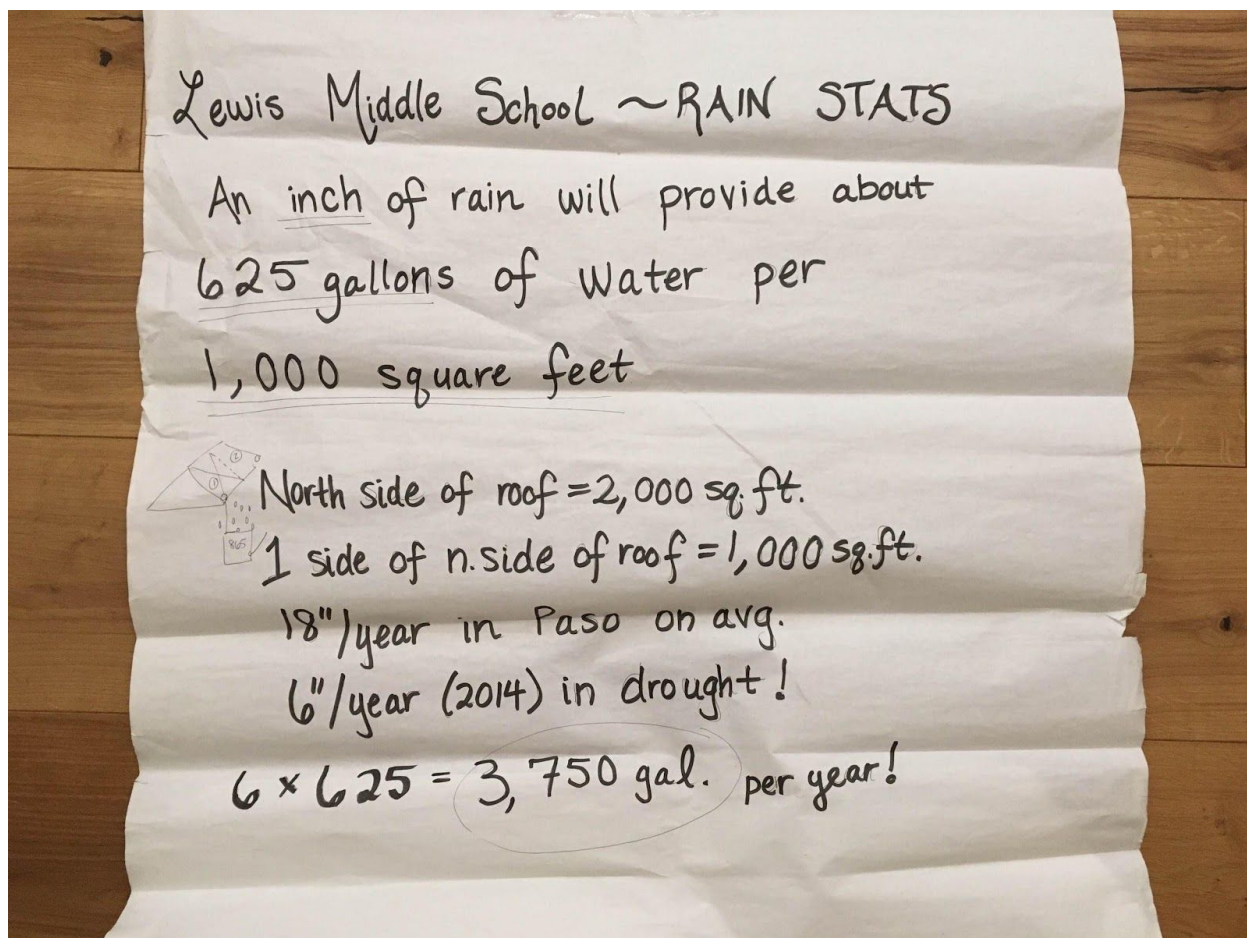 Lewis Middle School ~ RAIN STATS
An inch of rain will provide about
625 gallons of water per
1,000 square feet
North side of roof = 2,000 sq. ft.
1 side of n. side of roof = 1,000 sq. ft.
18"/year in Paso on avg.
6"/year (2014) in drought!
6 × 625 = 3,750 gal. per year!
1
2
865